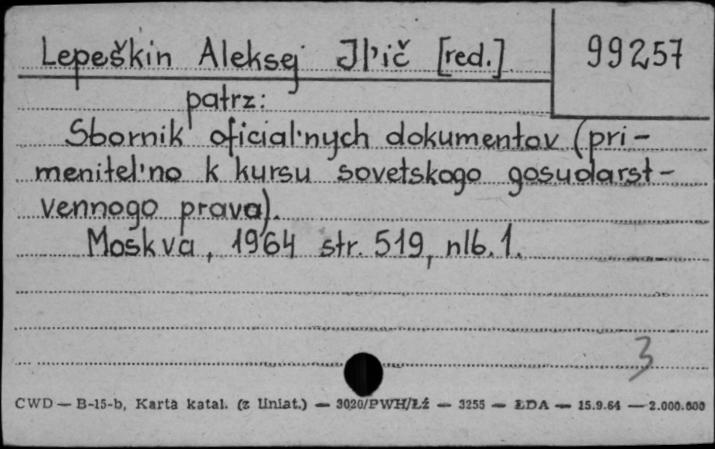 Lepeškin Aleksej Il'ič [red.]
99257
patrz:
Sbornik oficial'nych dokumentov (pri-
menitel'no k kursu sovetskogo gosudarst-
vennogo prava).
Moskva, 1964 str. 519, nlb. 1.
3
CWD — B-15-b, Karta katal. (z Uniat.) — 3020/PWH/Łź — 3255 — ŁDA — 15.9.64 — 2.000.000